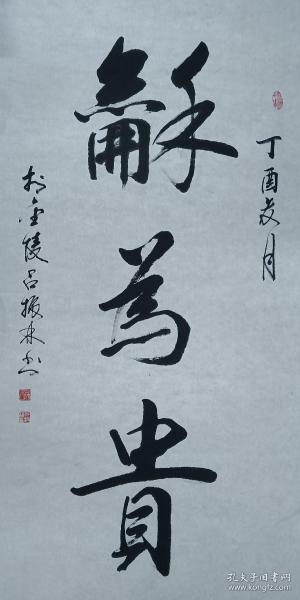 丁酉夏月
龢為貴
於金陵吕振林书
孔夫子旧书网